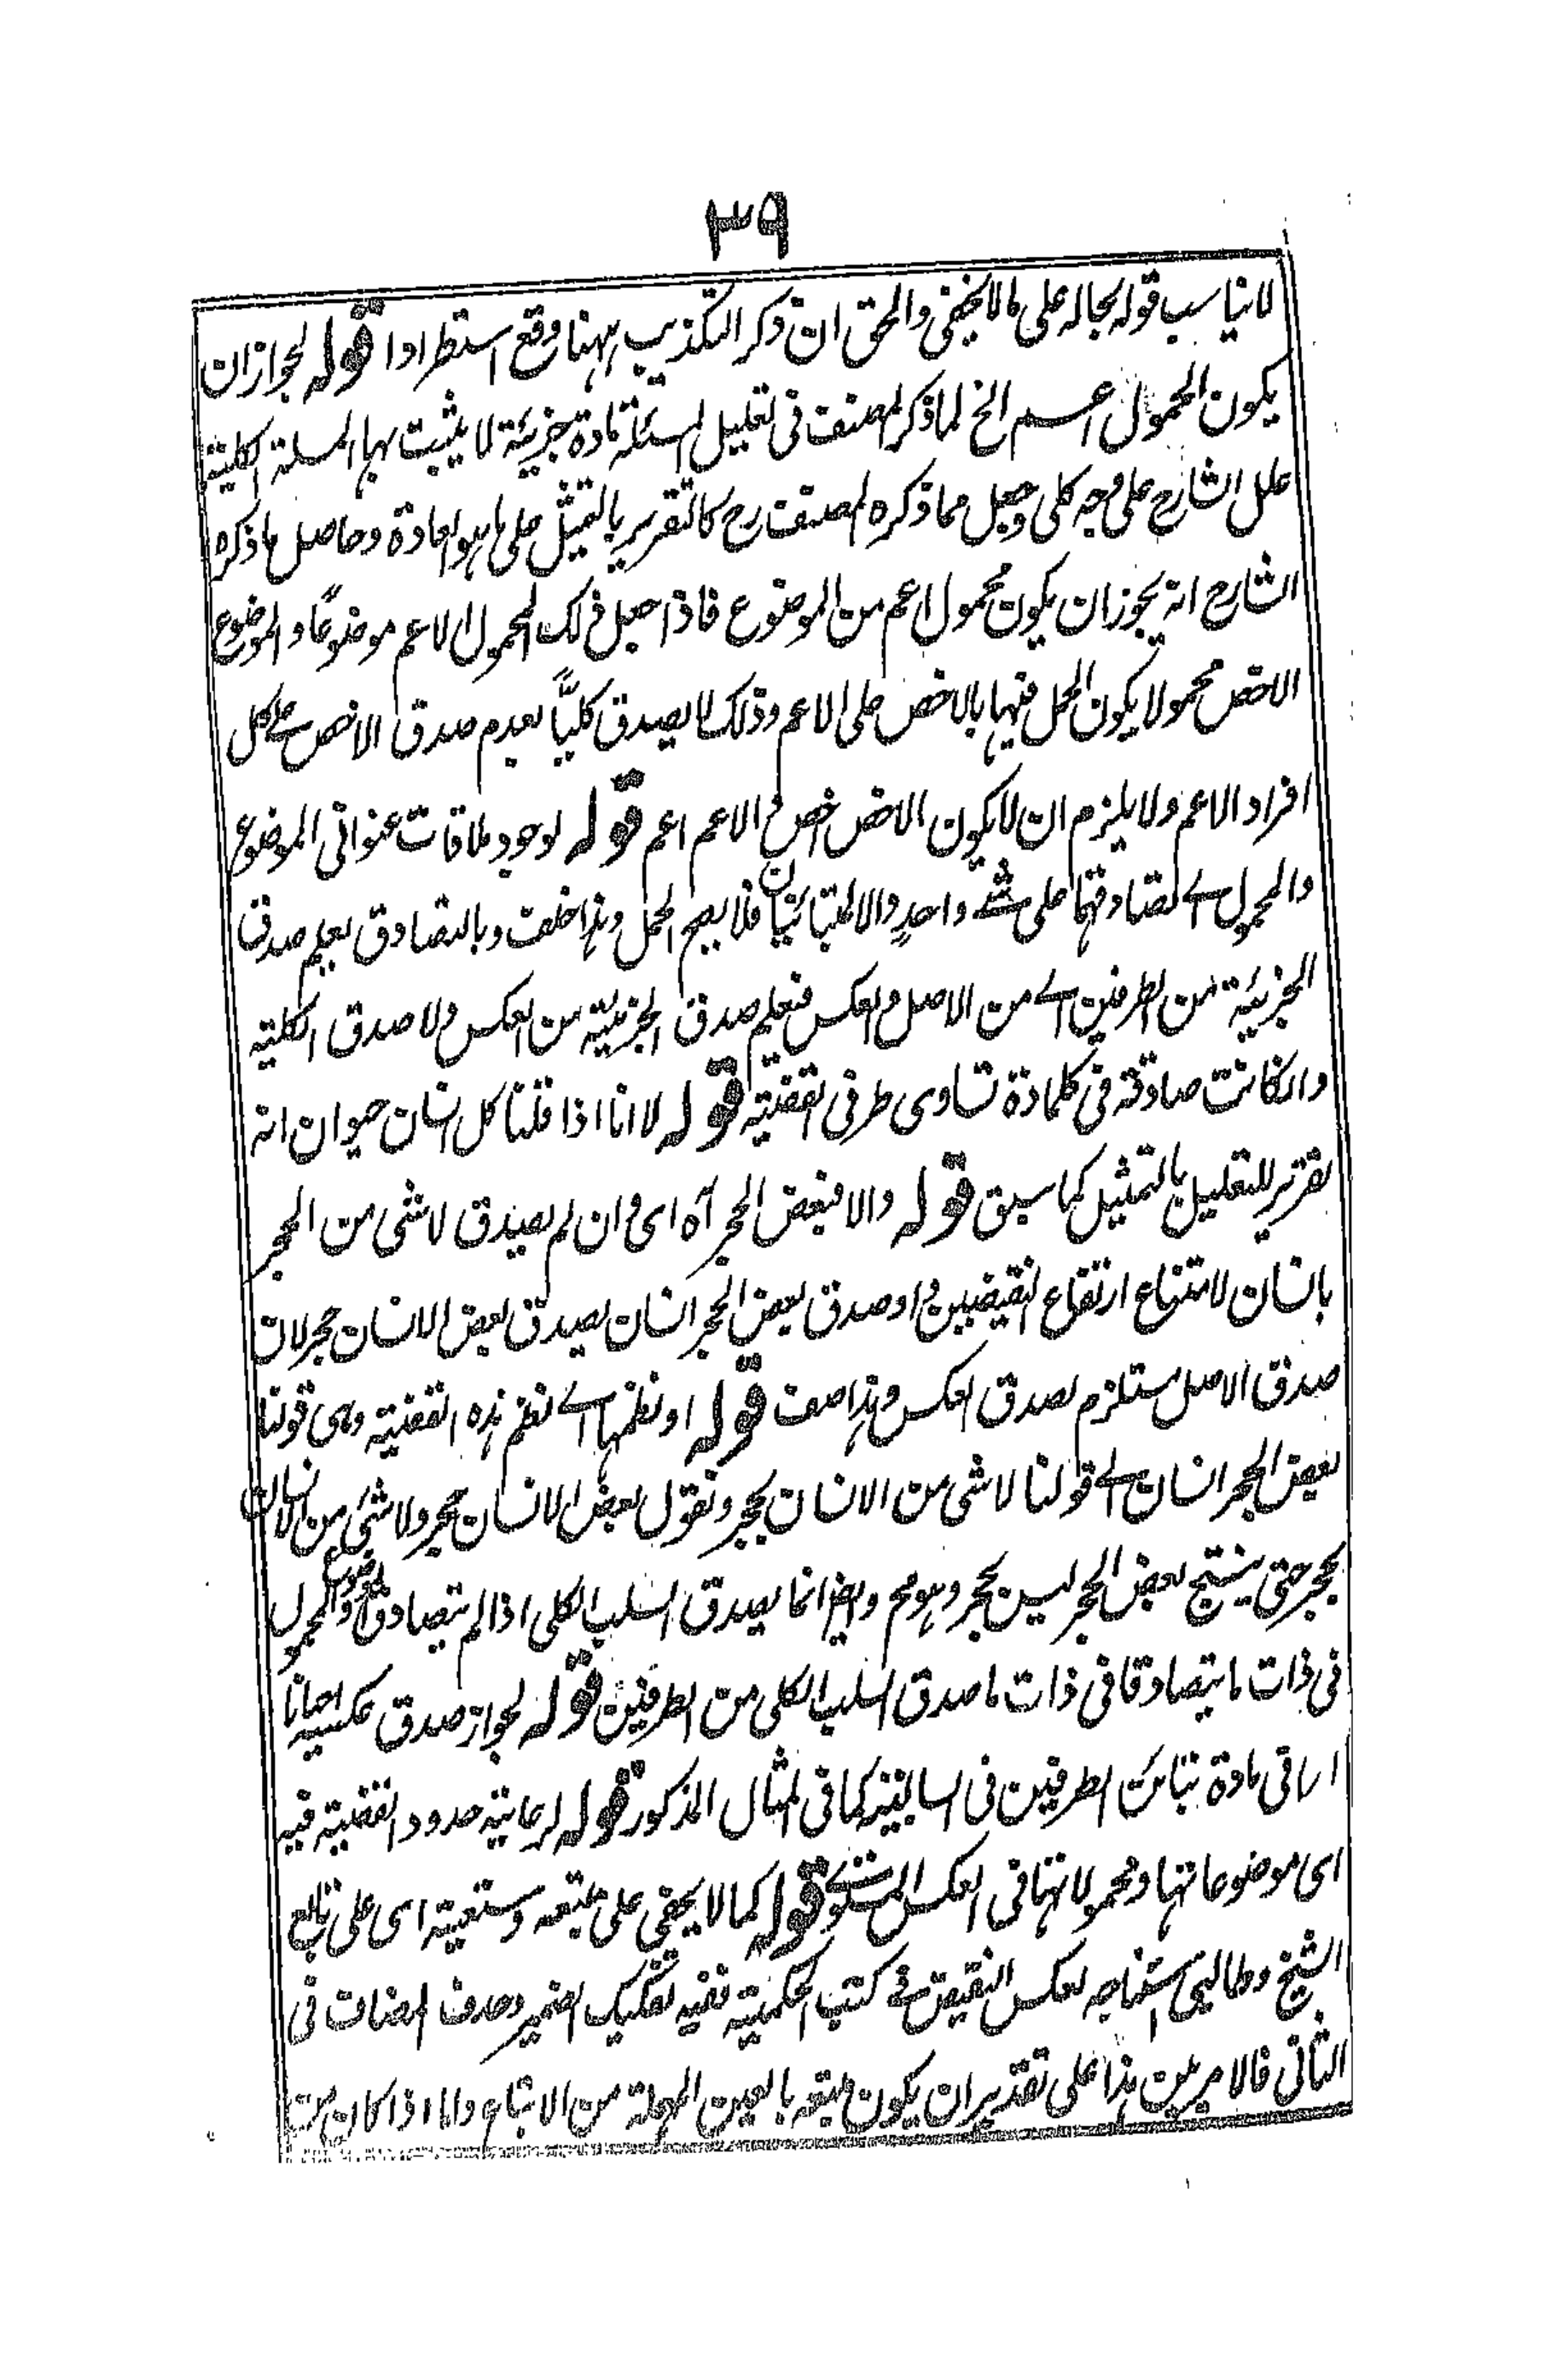 ٣٩
لا يناسب قوله بحاله على ما لا يخفى والحق ان ذكر التكذيب ههنا وقع استطرادا قوله لجواز ان
يكون المحمول اعم الخ لما ذكر المصنف فى تعليل المسئلة مادة جزئية لا يثبت بها المسئلة الكلية
علل الشارح على وجه كلى وجعل مما ذكره المصنف رح كالتقرير بالتمثيل على ما هو العادة وحاصل ما ذكره
الشارح انه يجوز ان يكون محمول اعم من الموضوع فاذا جعل ذلك المحمول الاعم موضوعًا والموضوع
الاخص محمولا يكون الحمل فيها بالاخص على الاعم وذلك لا يصدق كليًّا لعدم صدق الاخص على كل
افراد الاعم ولا يلزم ان لا يكون الاخص اخص و الاعم اعم قوله لوجود ملاقات عنوانى الموضوع
والمحمول اے لتصادقهما على شئے واحدٍ والا لتبائنان فلا يصح الحمل وهذا خلف وبالتصادق يعلم صدق
الجزئية من الطرفين اے من الاصل والعكس فنعلم صدق الجزئية من العكس ولا صدق الكلية
وان كانت صادقة فى كلمادة تساوى طرفى القضية قوله لا انا اذا قلنا كل انسان حيوان انه
تقرير للتعليل بالتمثيل كما سبق قوله والا فبعض الحجر آه اى وان لم يصدق لا شى من الحجر
بانسان لامتناع ارتفاع النقيضين و اوصدق بعض الحجر انسان يصدق بعض الانسان حجر لان
صدق الاصل مستلزم لصدق العكس وهذا صف قوله او نظمها اے نظم هذه القضية وهى قولنا
بعض الحجر انسان اے قولنا لا شى من الانسان بحجر ونقول بعض الانسان حجر ولا شئ من الانسان
بحجر حتى ينتج بعض الحجر ليس بحجر وهو مح وايضا انما يصدق السلب الكلى اذا لم يتصادق الموضوع والمحمول
فى ذات ما يتصادقا فى ذات ما صدق السلب الكلى من الطرفين قوله لجواز صدق عكسيه احيانا
اى فى مادة تباين الطرفين فى السالبتين كما فى المثال المذكور قوله لرعاية حدود القضية فيه
اى موضوعاتها ومحمولاتها فى العكس المستوے قوله كما لا يخفى على متبعه ومستعينه اى على تابع
الشيخ وطالبى استخراجه لعكس النقيض فے كتب الحكمية ففيه تفكيك الضمير وحذف المضاف فى
الثانى فالامر بين هذا على تقدير ان يكون متبعه بالعين المهملة من الاتباع واما اذا كان من